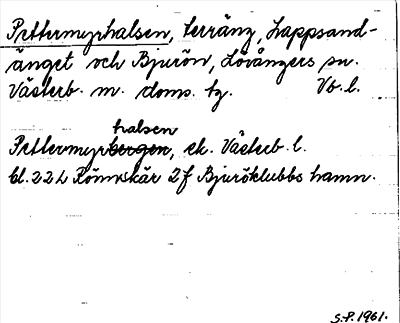 Pettermyrhalsen, terräng, Lappsand-
änget och Bjurön, Lövångers sn.
Västerb. m. doms. tg. Vb. l.
halsen
Pettermyrbergen, ek. Västerb. l.
bl. 22 L Rönnskär 2f Bjuröklubbs hamn.
S.P. 1961.